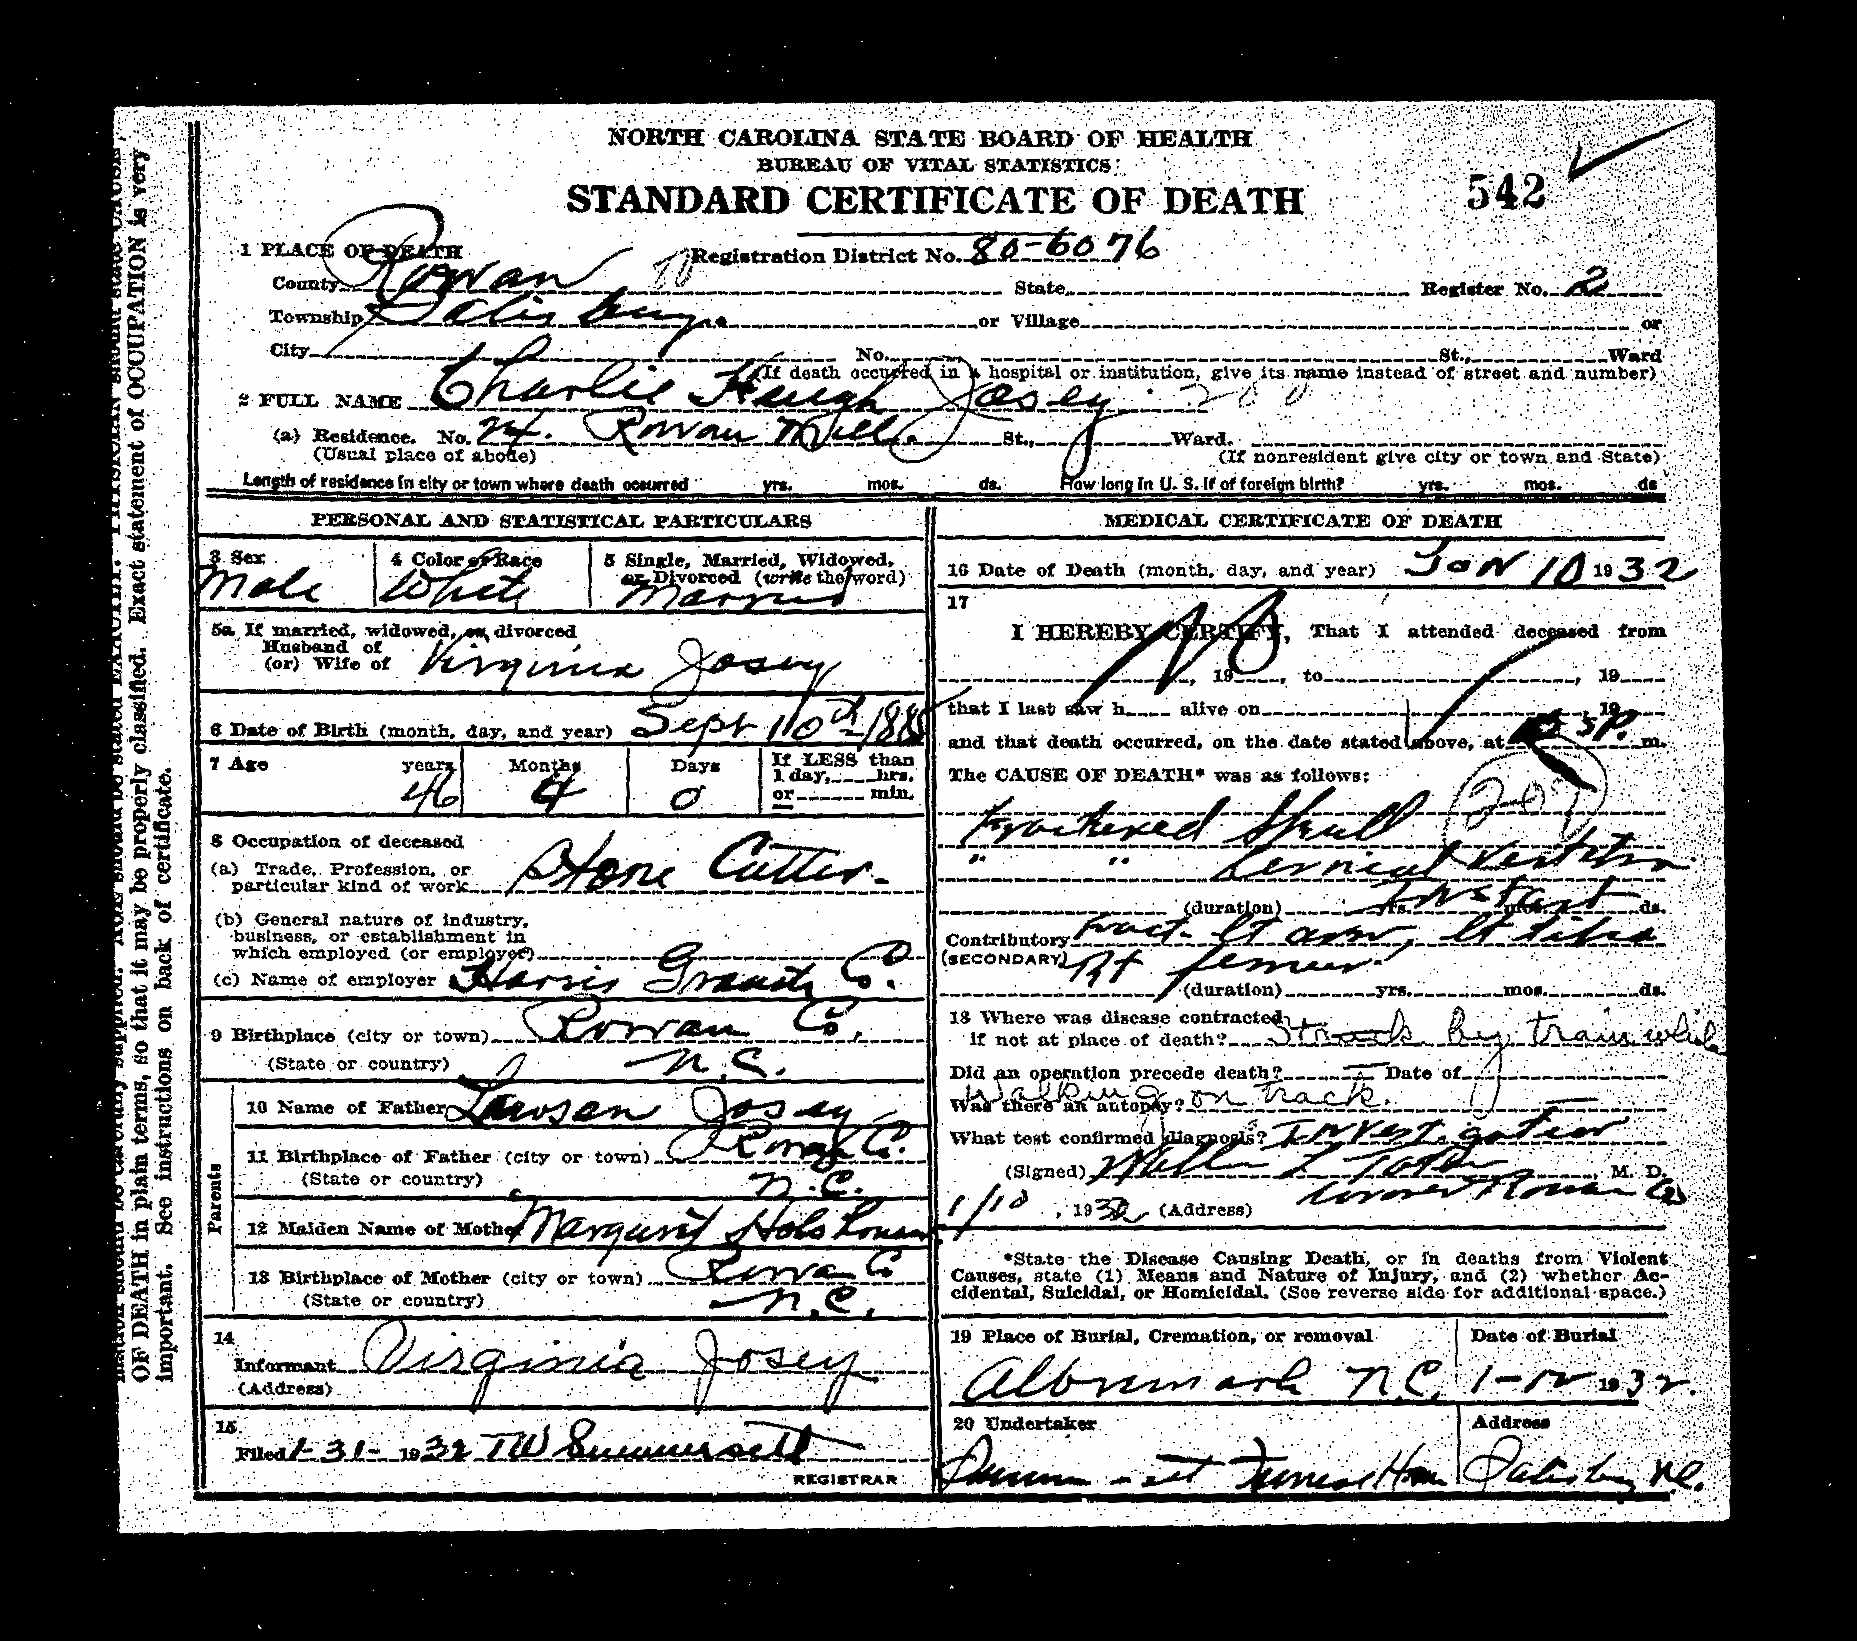 NORTH CAROLINA STATE BOARD OF HEALTH
BUREAU OF VITAL STATISTICS
STANDARD CERTIFICATE OF DEATH
542
1 PLACE OF DEATH
Registration District No. 80-6076
County Rowan State Register No. 2
Township Salisbury. or Village or
City No. St., Ward
(If death occurred in a hospital or institution, give its name instead of street and number)
2 FULL NAME Charlie Hough Josey
(a) Residence. No. Rowan Mill. St., Ward.
(Usual place of abode) (If nonresident give city or town and State)
Length of residence in city or town where death occurred yrs. mos. ds. How long in U. S. if of foreign birth? yrs. mos. ds
PERSONAL AND STATISTICAL PARTICULARS
3 Sex
Male
4 Color or Race
White
5 Single, Married, Widowed,
or Divorced (write the word)
Married
5a If married, widowed, or divorced
Husband of
(or) Wife of Virginia Josey
6 Date of Birth (month, day, and year) Sept 10th
7 Age years Months Days If LESS than
1 day, hrs.
46 4 0 or min.
8 Occupation of deceased
(a) Trade, Profession, or
particular kind of work Stone Cutter.
(b) General nature of industry,
business, or establishment in
which employed (or employer)
(c) Name of employer Harris Granite Co.
9 Birthplace (city or town) Rowan Co.
(State or country) N.C.
Parents
10 Name of Father Lawson Josey
11 Birthplace of Father (city or town) Rowan Co.
(State or country) N.C.
12 Maiden Name of Mother Margaret Holshouser
13 Birthplace of Mother (city or town) Rowan Co
(State or country) N.C.
14
Informant Virginia Josey
(Address)
15
Filed 1-31- 1932 TW Summersett
REGISTRAR
MEDICAL CERTIFICATE OF DEATH
16 Date of Death (month, day, and year) Jan 10 1932
17
I HEREBY CERTIFY, That I attended deceased from
, 19 , to , 19
that I last saw h alive on 19
and that death occurred, on the date stated above, at P. m.
The CAUSE OF DEATH* was as follows:
Fractured Skull
" " Cervical Vertebra
(duration) yrs. mos. ds.
Instant
Contributory Fract- lt arm, lt tibia
(SECONDARY) Rt femur
(duration) yrs. mos. ds.
18 Where was disease contracted
if not at place of death? Struck by train while
Did an operation precede death? — Date of
walking on track.
Was there an autopsy? —
What test confirmed diagnosis? Investigation
(Signed) , M. D.
1/10, 1932 (Address) Coroner Rowan Co
*State the Disease Causing Death, or in deaths from Violent
Causes, state (1) Means and Nature of Injury, and (2) whether Ac-
cidental, Suicidal, or Homicidal. (See reverse side for additional space.)
19 Place of Burial, Cremation, or removal Date of Burial
Albemarle N.C. 1-12 1932.
20 Undertaker Address
Summersett Funeral Home Salisbury N.C.
OF DEATH in plain terms, so that it may be properly classified. Exact statement of OCCUPATION is very
important. See instructions on back of certificate.